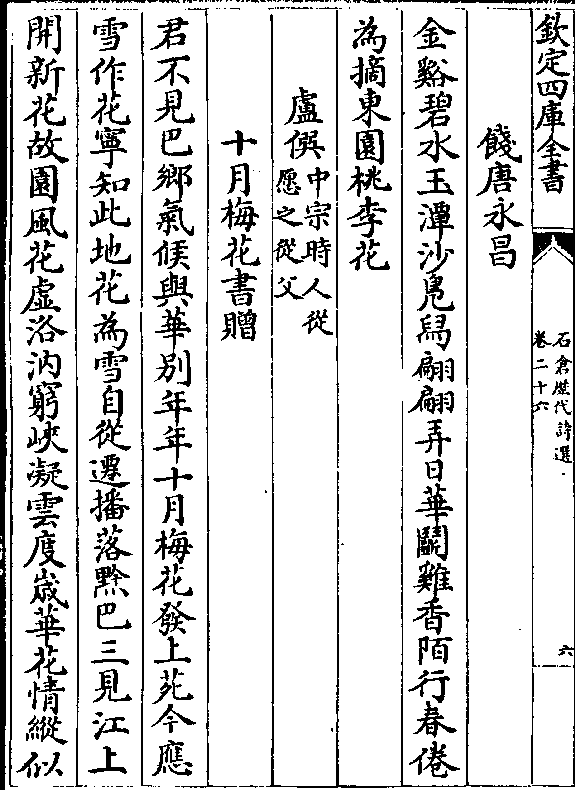 欽定四庫全書
石倉歴代詩選
卷二十六
六
餞唐永昌
金谿碧水玉潭沙鳬舄翩翩弄日華鬭雞香陌行春倦
為摘東園桃李花
盧僎中宗時人從
愿之從父
十月梅花書贈
君不見巴鄉氣候與華别年年十月梅花發上苑今應
雪作花寧知此地花為雪自從遷播落黔巴三見江上
開新花故園風花虛洛汭窮峽凝雲度嵗華花情縱似